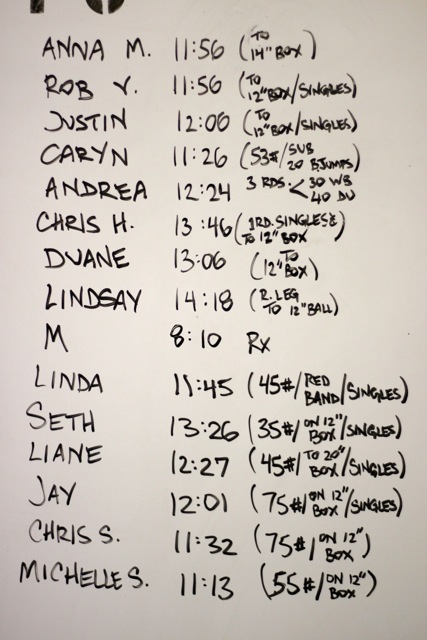 ANNA M. 11:56 (TO 14" BOX)
ROB V. 11:56 (TO 12" BOX/SINGLES)
JUSTIN 12:06 (TO 12" BOX/SINGLES)
CARYN 11:26 (53#/SUB 20 B.JUMPS)
ANDREA 12:24 3 RDS. < 30 WB 40 DU
CHRIS H. 13:46 (1RD. SINGLES & TO 12" BOX)
DUANE 13:06 (TO 12" BOX)
LINDSAY 14:18 (R. LEG TO 12" BALL)
M 8:10 Rx
LINDA 11:45 (45#/RED BAND/SINGLES)
SETH 13:26 (35#/ON 12" BOX/SINGLES)
LIANE 12:27 (45#/TO 20" BOX/SINGLES)
JAY 12:01 (75#/ON 12" BOX/SINGLES)
CHRIS S. 11:32 (75#/ON 12" BOX)
MICHELLE S. 11:13 (55#/ON 12" BOX)